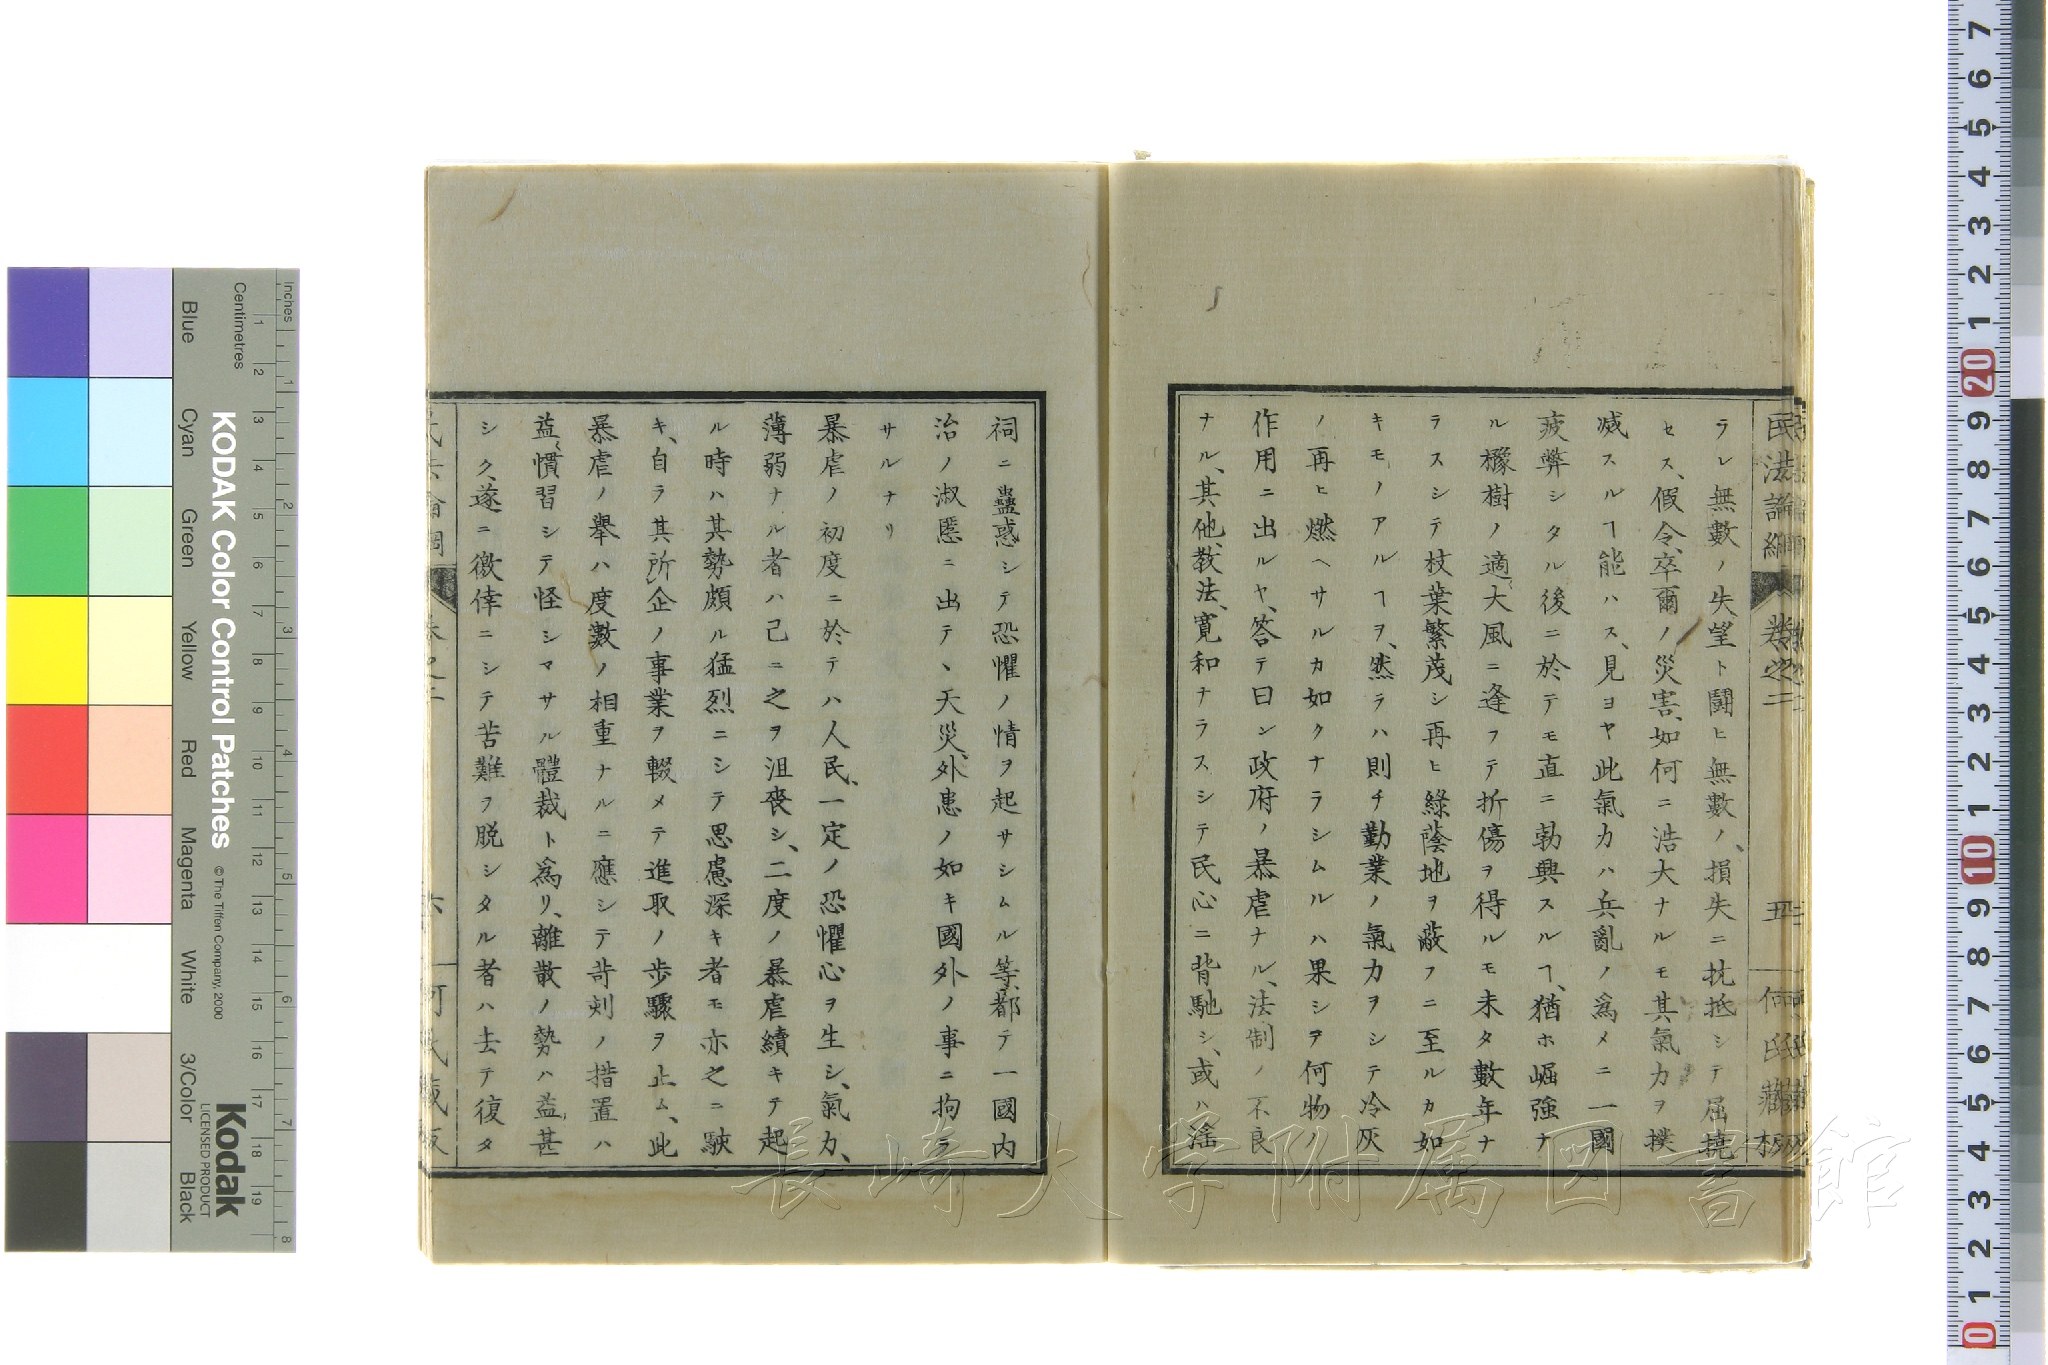 民法論綱 卷之二 五 何氏藏板
ラレ無數ノ失望ト鬪ヒ無數ノ、損失ニ抗抵シテ屈撓
セス、假令、卒爾ノ災害、如何ニ浩大ナルモ其氣力ヲ撲
滅スルヿ能ハス、見ヨヤ此氣力ハ兵亂ノ爲メニ一國
疲弊シタル後ニ於テモ直ニ勃興スルヿ、猶ホ崛強ナ
ル橡樹ノ適、大風ニ逢フテ折傷ヲ得ルモ未タ數年ナ
ラスシテ枝葉繁茂シ再ヒ綠蔭地ヲ蔽フニ至ルカ如
キモノアルヿヲ、然ラハ則チ勤業ノ氣力ヲシテ冷灰
ノ再ヒ燃ヘサルカ如クナラシムルハ果シヲ何物ノ
作用ニ出ルヤ、答テ曰ン政府ノ暴虐ナル、法制ノ不良
ナル、其他、敎法、寛和ナラスシテ民心ニ背馳シ、或ハ淫
祠ニ蠱惑シテ恐懼ノ情ヲ起サシムル等、都テ一國内
治ノ淑慝ニ出テヽ天災、外患ノ如キ國外ノ事ニ拘ラ
サルナリ
暴虐ノ初度ニ於テハ人民、一定ノ恐懼心ヲ生シ、氣力、
薄弱ナル者ハ己ニ之ヲ沮喪シ、二度ノ暴虐續キテ起
ル時ハ其勢頗ル猛烈ニシテ思慮深キ者モ亦之ニ駛
キ、自ラ其所企ノ事業ヲ輟メテ進取ノ歩驟ヲ止ム、此
暴虐ノ擧ハ度數ノ相重ナルニ應シテ苛刻ノ措置ハ
益、慣習シテ怪シマサル體裁ト爲リ、離散ノ勢ハ益、甚
シク、遂ニ徼倖ニシテ苦難ヲ脱シタル者ハ去テ復タ
民法論綱 卷之二 六 何氏藏板
Blue Cyan Green Yellow Red Magenta White 3/Color Black
KODAK Color Control Patches © The Tiffen Company, 2000
Kodak
LICENSED PRODUCT
Inches 1 2 3 4 5 6 7 8
Centimetres 1 2 3 4 5 6 7 8 9 10 11 12 13 14 15 16 17 18 19
7 6 5 4 3 2 1 20 9 8 7 6 5 4 3 2 1 10 9 8 7 6 5 4 3 2 1 0
長崎大学附属図書館